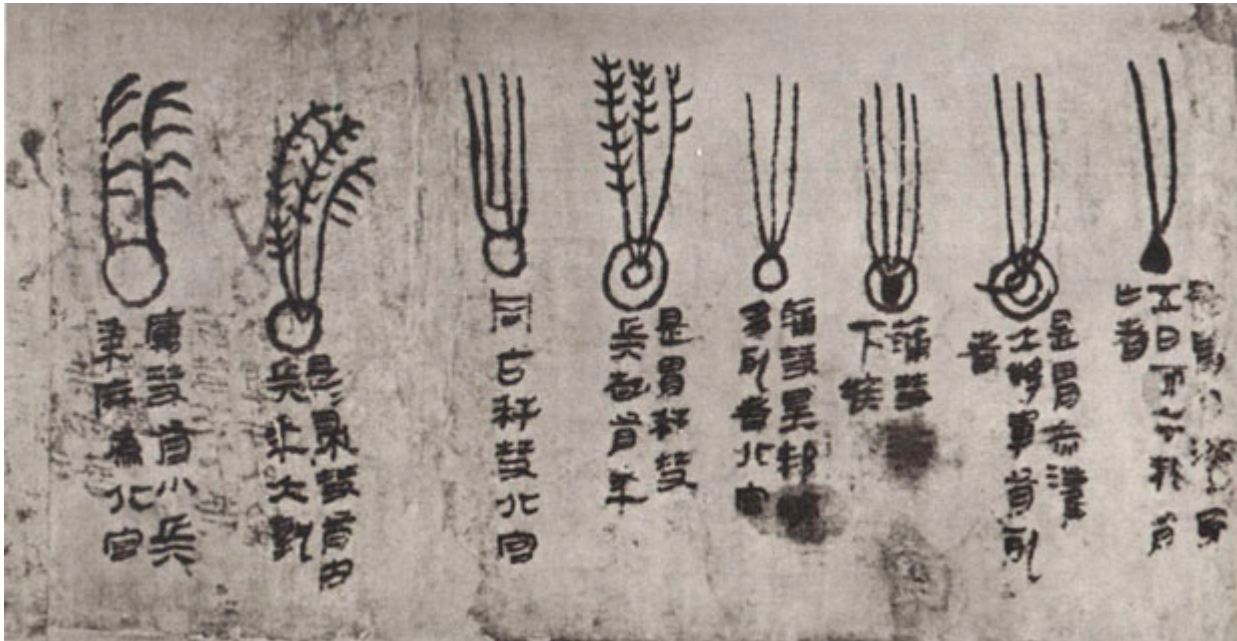 是胃白灌見
五日而去邦有
亡者
是胃赤灌
大將軍有死
者
蒲彗
下疾
蒲彗星邦
多死者北宮
是胃秆彗
兵起有年
同占秆彗北宮
是是帚彗有內
兵年大孰
厲彗有小兵
黍麻為北宮